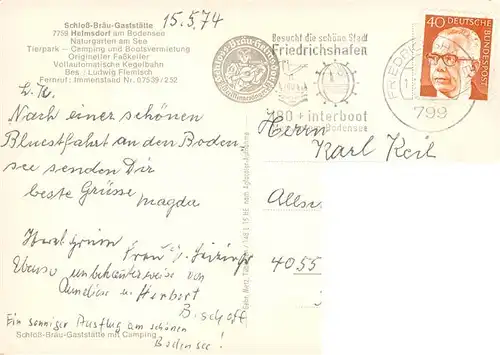 Schloß-Bräu-Gaststätte
7759 Helmsdorf am Bodensee
Naturgarten am See
Tierpark – Camping und Bootsvermietung
Originaler Faßkeller
Vollautomatische Kegelbahn
Bes.: Ludwig Flemisch
Fernruf: Immenstaad Nr. 07539/252
15.5.74
Besucht die schöne Stadt
Friedrichshafen
+ interboot
Bodensee
799
40
DEUTSCHE BUNDESPOST
Nach einer schönen
Bluestfahrt an den Boden
see senden Dir
beste Grüsse
Magda
Herrn
Karl Keil
4055
Frau
Ebenso unbekannterweise von
Anneliese u. Herbert
Bischoff
Ein sonniger Ausflug am schönen
Bodensee!
Schloß-Bräu-Gaststätte mit Camping